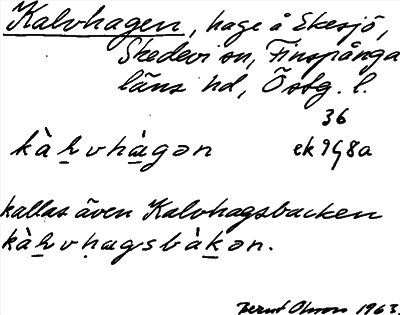 Kalvhagen, hage å Ekesjö,
Skedevi sn, Finspånga
läns hd, Östg. l.
36
kàlvhàgən ek 9G8a
kallas även Kalvhagsbacken
kàlvhagsbàkən.
Bernt Olsson 1963.